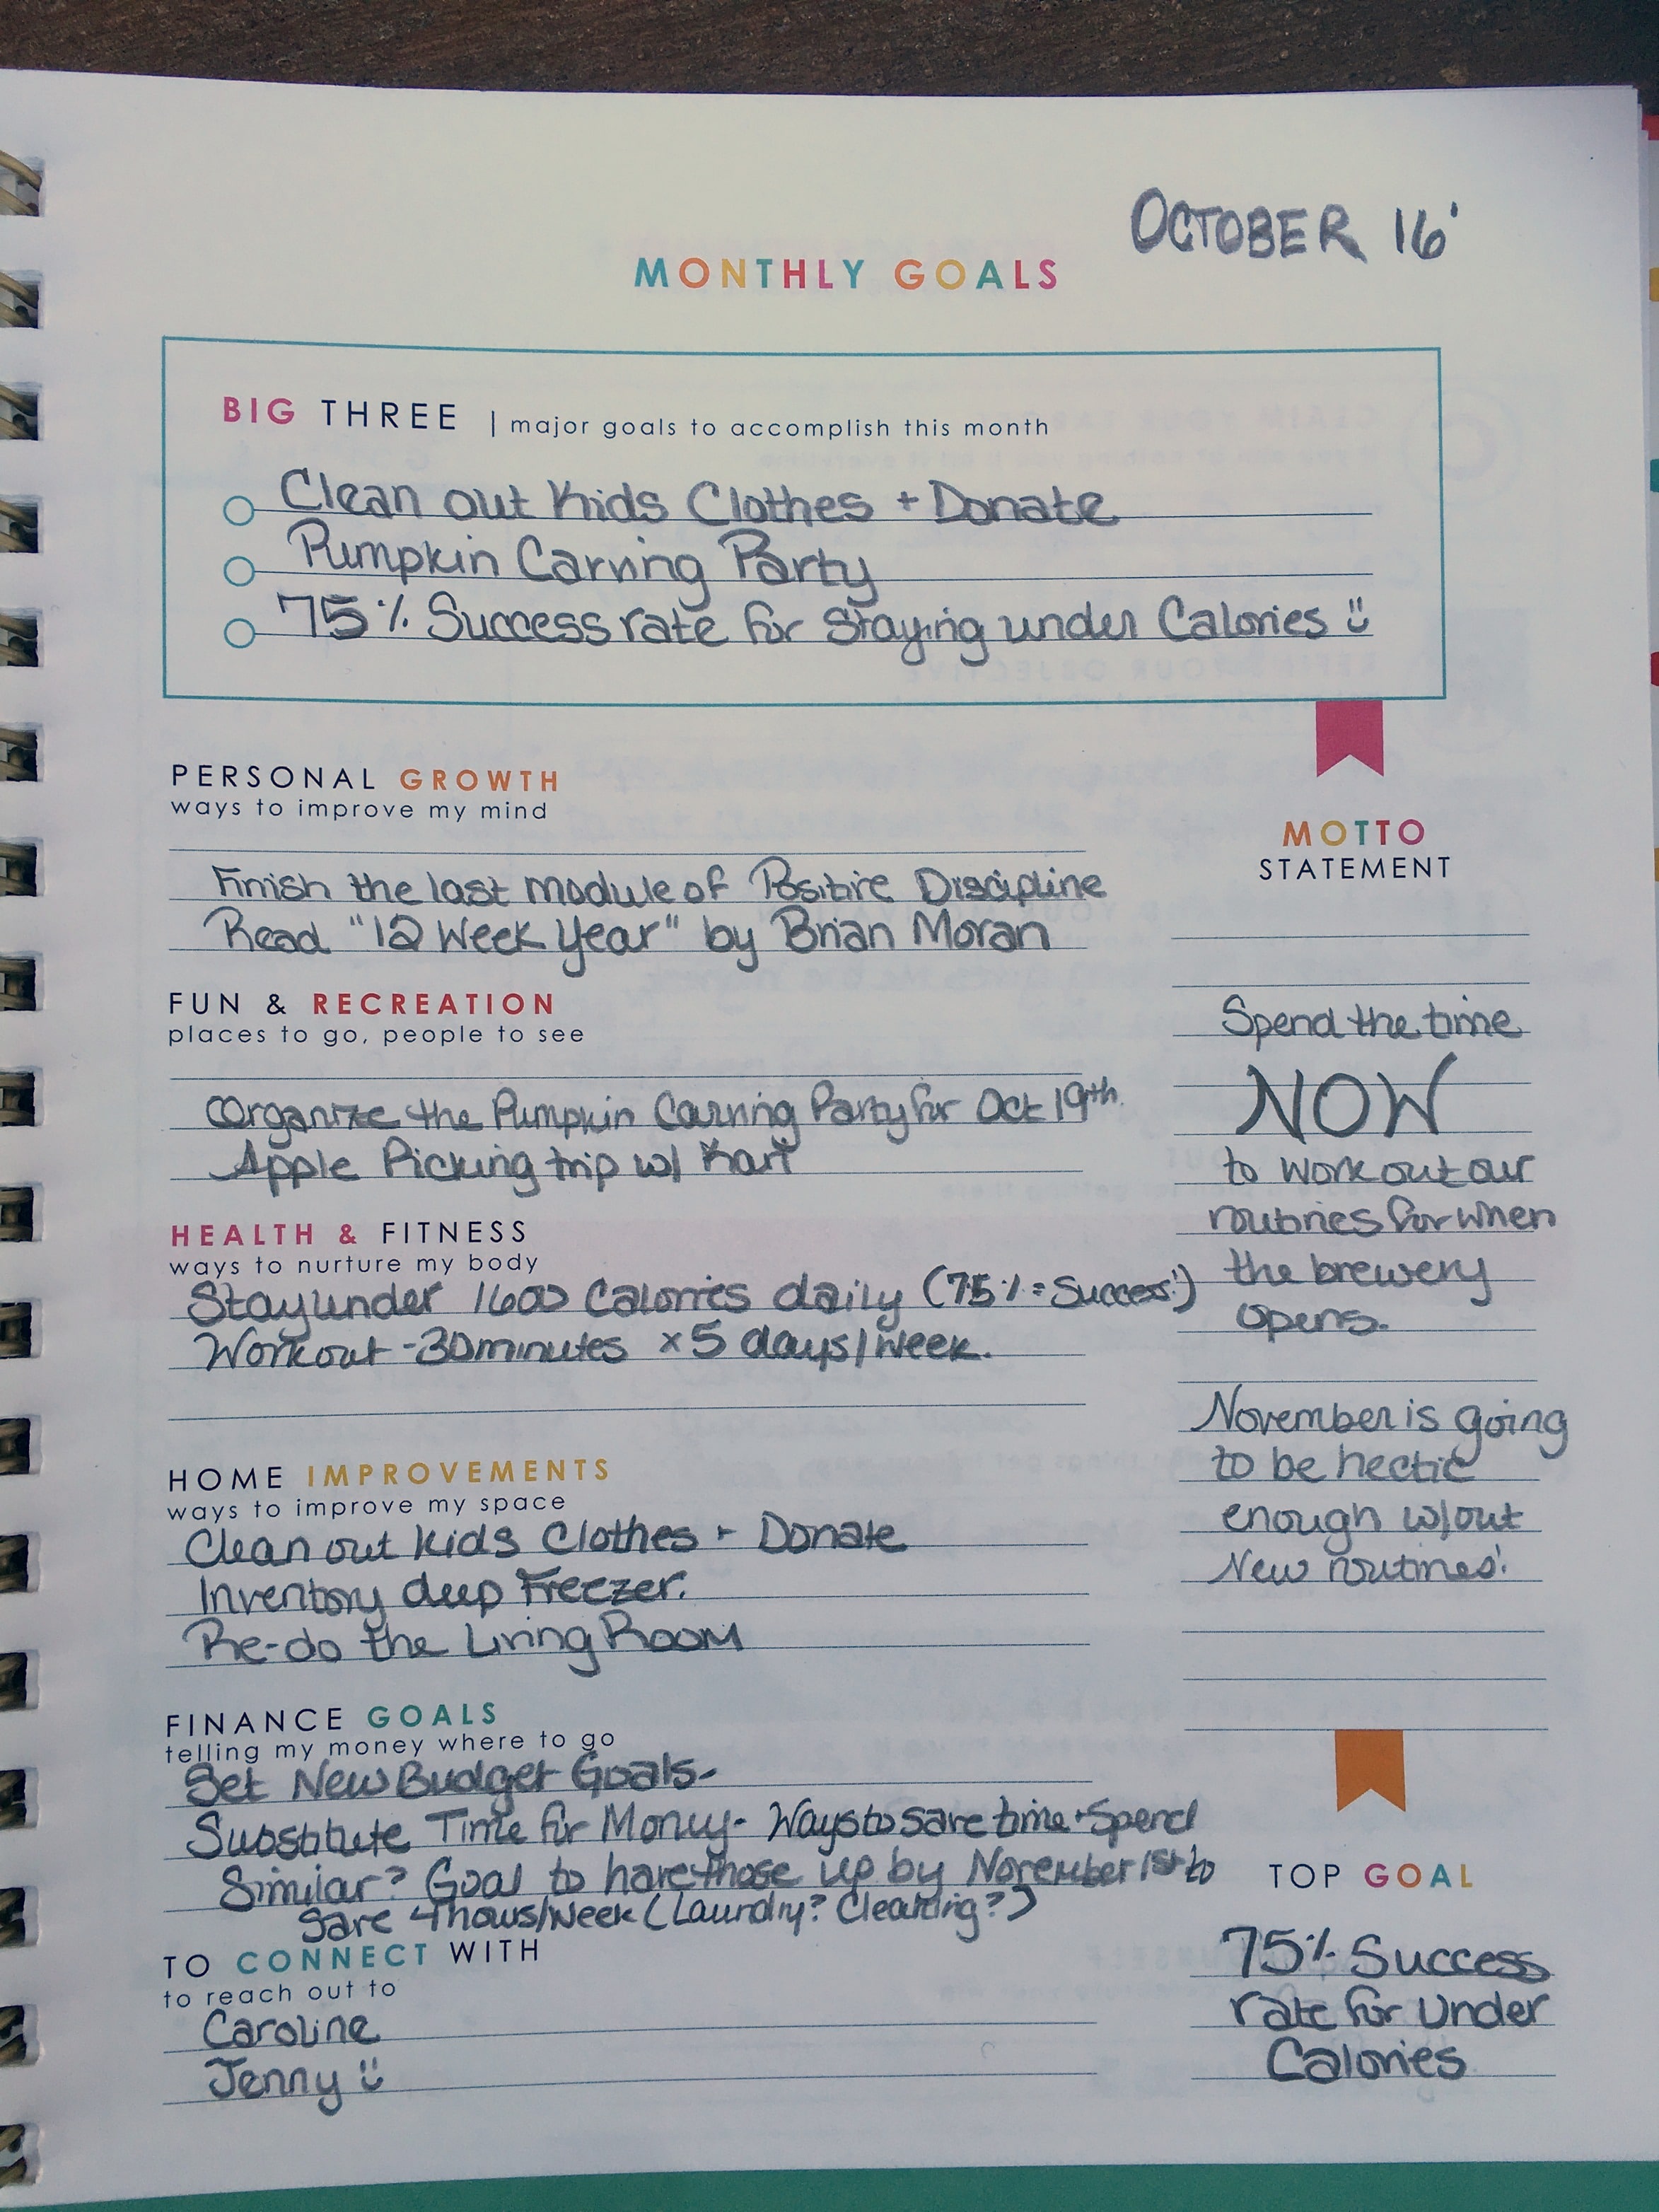 OCTOBER 16'
MONTHLY GOALS
BIG THREE | major goals to accomplish this month
Clean out Kids Clothes + Donate
Pumpkin Carving Party
75% Success rate for Staying under Calories
PERSONAL GROWTH
ways to improve my mind
Finish the last module of Positive Discipline
Read "12 Week Year" by Brian Moran
FUN & RECREATION
places to go, people to see
Organize the Pumpkin Carving Party for Oct 19th.
Apple Picking trip w/
HEALTH & FITNESS
ways to nurture my body
Stay under 1600 Calories daily (75% = Success!)
Workout - 30 minutes x 5 days/week.
HOME IMPROVEMENTS
ways to improve my space
Clean out kids Clothes + Donate
Inventory deep Freezer.
Re-do the Living Room
FINANCE GOALS
telling my money where to go
Set New Budget Goals-
Substitute Time for Money- Ways to save time + Spend
Similar? Goal to have those up by November 1st to
save 4 hours/week (Laundry? Cleaning?)
TO CONNECT WITH
to reach out to
Caroline
Jenny
MOTTO
STATEMENT
Spend the time
NOW
to work out our
routines for when
the brewery
opens.
November is going
to be hectic
enough w/out
New routines!
TOP GOAL
75% Success
rate for Under
Calories